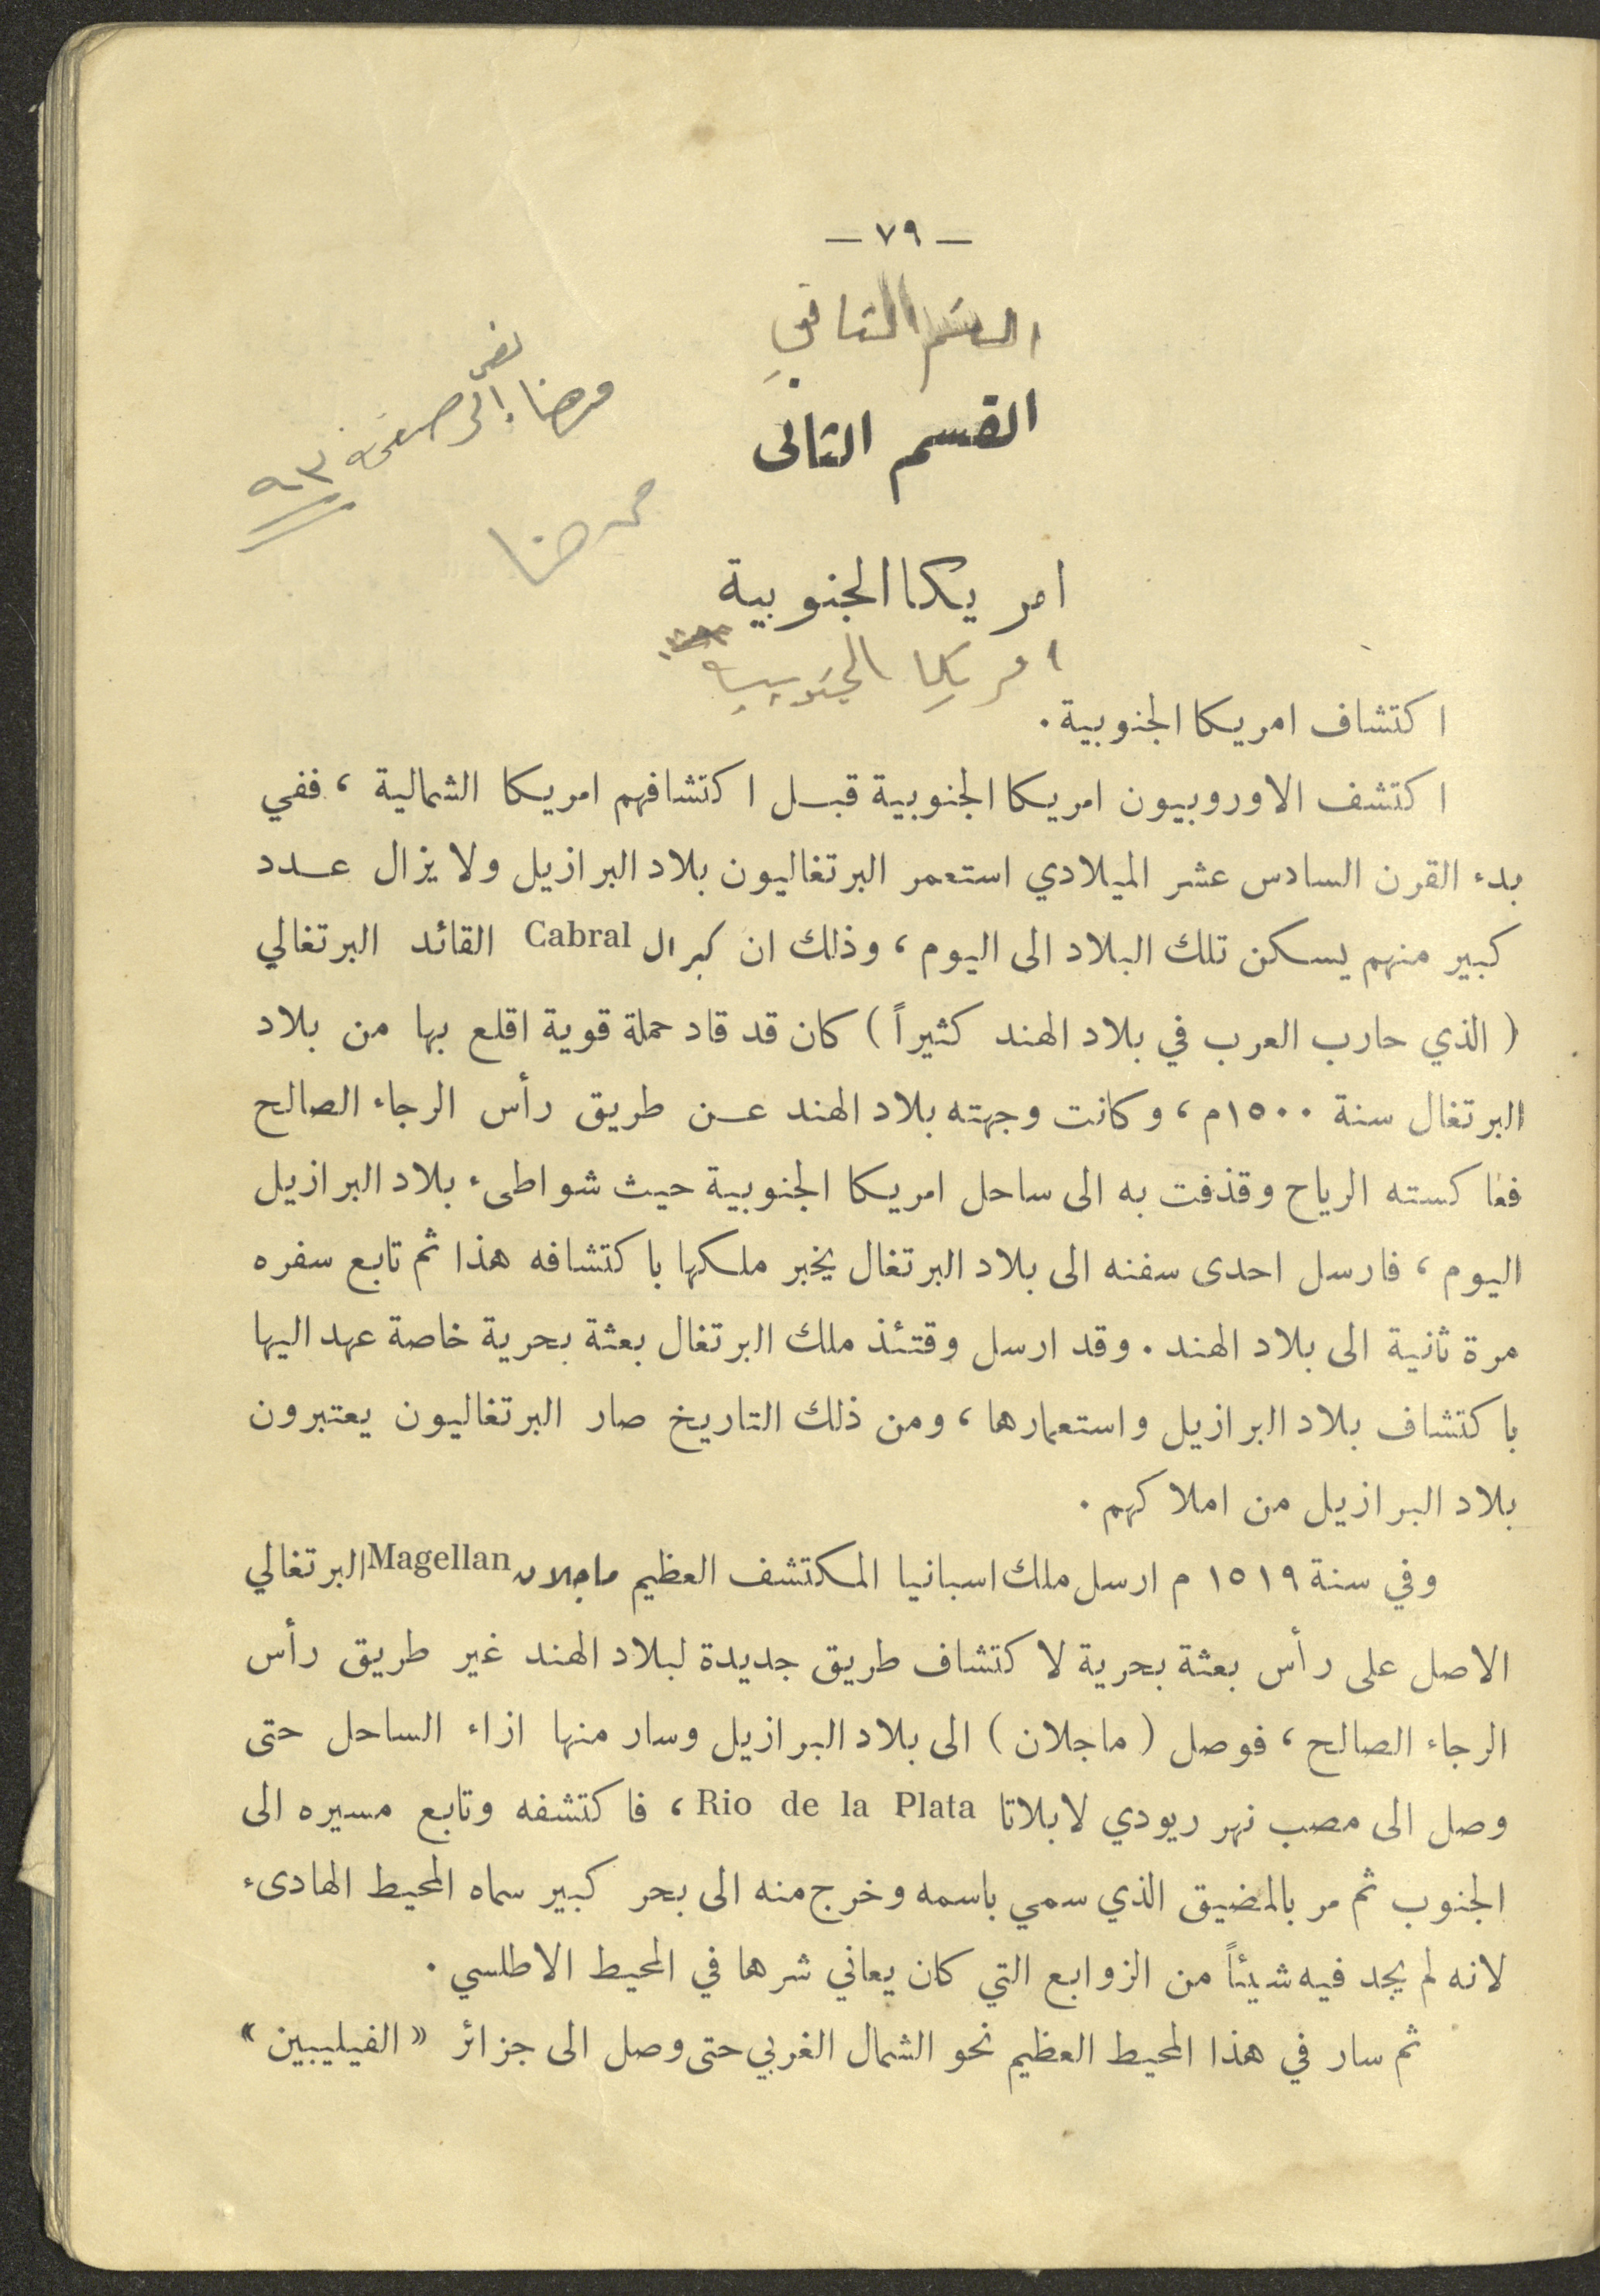 — ٧٩ —
القسم الثاني
القسم الثانى
من هنا إلى صفحة ٩٣
من هنا
امريكا الجنوبية
امريكا الجنوبية
اكتشاف امريكا الجنوبية .
اكتشف الاوروبيون امريكا الجنوبية قبل اكتشافهم امريكا الشمالية ، ففي
بدء القرن السادس عشر الميلادي استعمر البرتغاليون بلاد البرازيل ولا يزال عدد
كبير منهم يسكن تلك البلاد الى اليوم ، وذلك ان كبرال Cabral القائد البرتغالي
( الذي حارب العرب في بلاد الهند كثيراً ) كان قد قاد حملة قوية اقلع بها من بلاد
البرتغال سنة ١٥٠٠م ، وكانت وجهته بلاد الهند عن طريق رأس الرجاء الصالح
فعاكسته الرياح وقذفت به الى ساحل امريكا الجنوبية حيث شواطىء بلاد البرازيل
اليوم ، فارسل احدى سفنه الى بلاد البرتغال يخبر ملكها باكتشافه هذا ثم تابع سفره
مرة ثانية الى بلاد الهند . وقد ارسل وقتئذ ملك البرتغال بعثة بحرية خاصة عهد اليها
باكتشاف بلاد البرازيل واستعمارها ، ومن ذلك التاريخ صار البرتغاليون يعتبرون
بلاد البرازيل من املاكهم .
وفي سنة ١٥١٩ م ارسل ملك اسبانيا المكتشف العظيم ماجلان Magellan البرتغالي
الاصل على رأس بعثة بحرية لاكتشاف طريق جديدة لبلاد الهند غير طريق رأس
الرجاء الصالح ، فوصل ( ماجلان ) الى بلاد البرازيل وسار منها ازاء الساحل حتى
وصل الى مصب نهر ريودي لابلاتا Rio de la Plata ، فاكتشفه وتابع مسيره الى
الجنوب ثم مر بالمضيق الذي سمي باسمه وخرج منه الى بحر كبير سماه المحيط الهادىء
لانه لم يجد فيه شيئاً من الزوابع التي كان يعاني شرها في المحيط الاطلسي .
ثم سار في هذا المحيط العظيم نحو الشمال الغربي حتى وصل الى جزائر « الفيليبين »